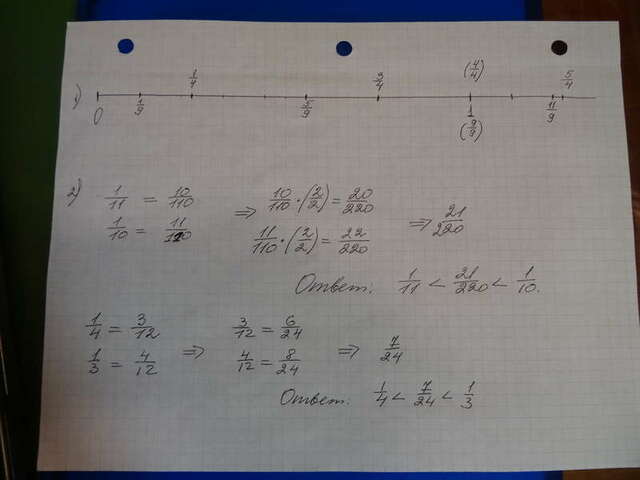 1/4 3/4 (4/4) 5/4
1)
0 1/9 5/9 1 11/9
(9/9)
2) 1/11 = 10/110 ⇒ 10/110 · (2/2) = 20/220
1/10 = 11/110 11/110 · (2/2) = 22/220 ⇒ 21/220
Ответ. 1/11 < 21/220 < 1/10.
1/4 = 3/12 3/12 = 6/24
1/3 = 4/12 ⇒ 4/12 = 8/24 ⇒ 7/24
Ответ. 1/4 < 7/24 < 1/3